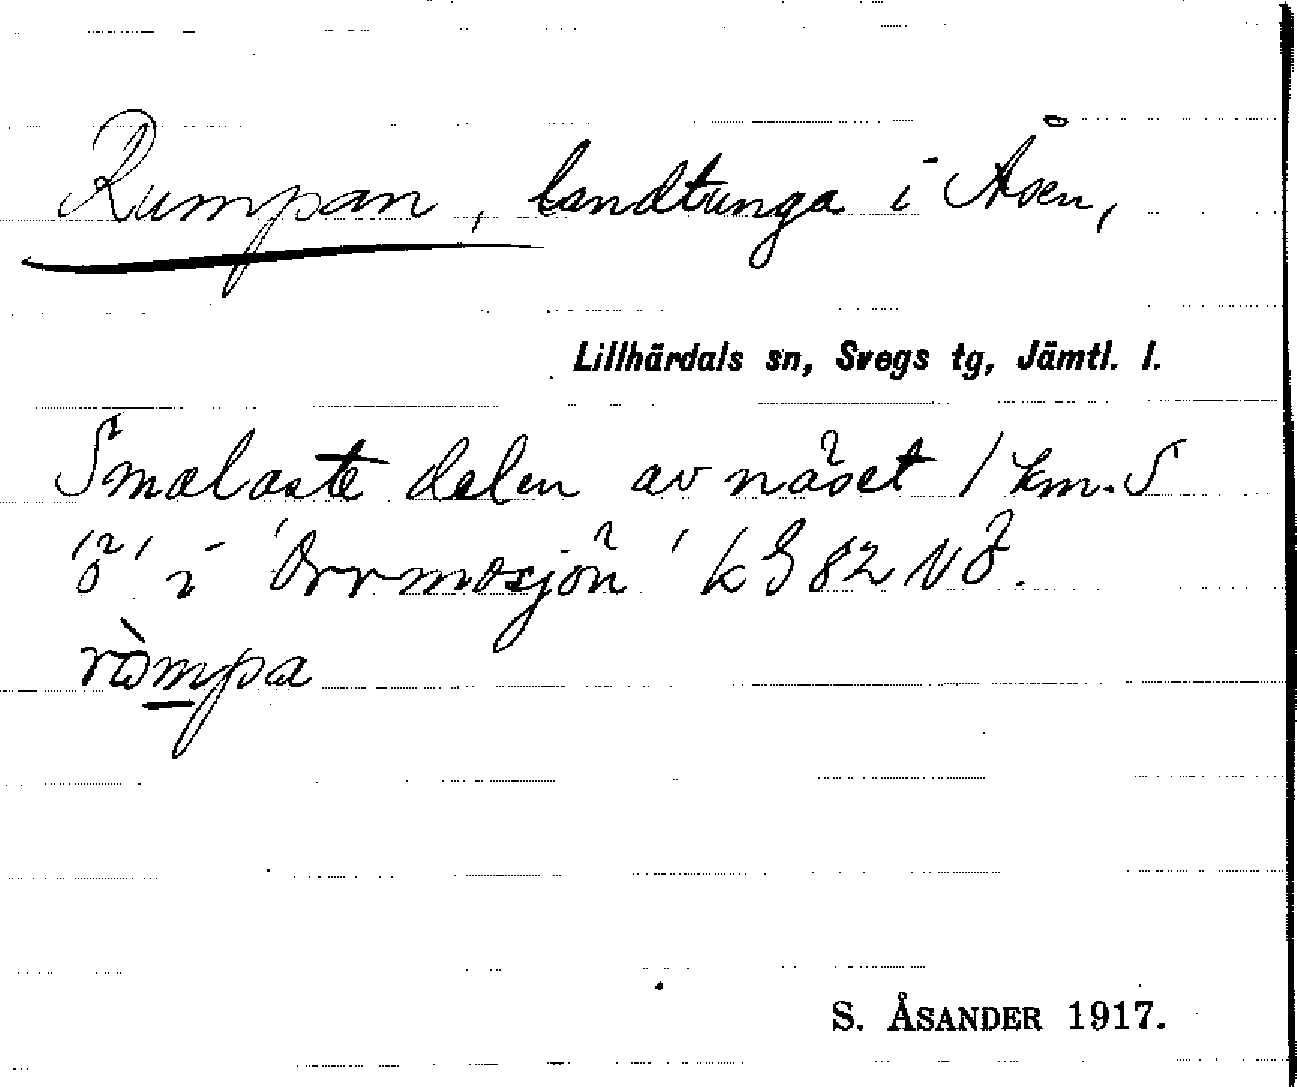 Rumpan, landtunga i Åsen,
Lillhärdals sn, Svegs tg, Jämtl. l.
Smalaste delen av näset 1 km. S
'ö' i 'Orrmosjön' k G 82 NÖ.
ròmpa
S. ÅSANDER 1917.